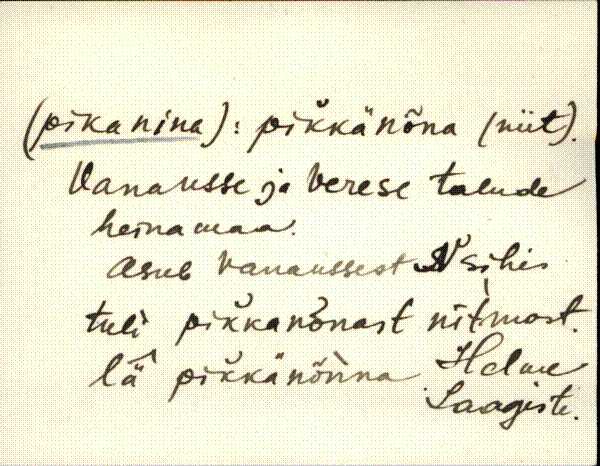 (pikanina): pik̆känõna (niit).
Vanausse ja Verese talude
heinamaa.
Asub Vanaussest N sihis
tuli pik̆kanõnast nìtmast.
lä̂ pik̆känõ̀nna Helme
Laagiste.